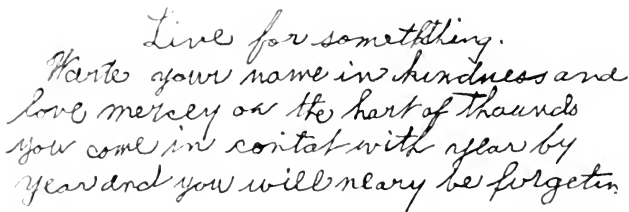 Live for sometkthing.
Warte your name in kindness and
love mercey on the hart of thaunds
you come in contat with year by
year and you will neary be forgeten